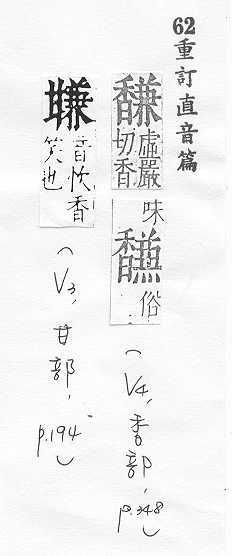 62 重訂直音篇
馦 虛嚴切香
味 俗
(V4, 香部, p.348)
音忺香
也
(V3, 甘部, p.194)